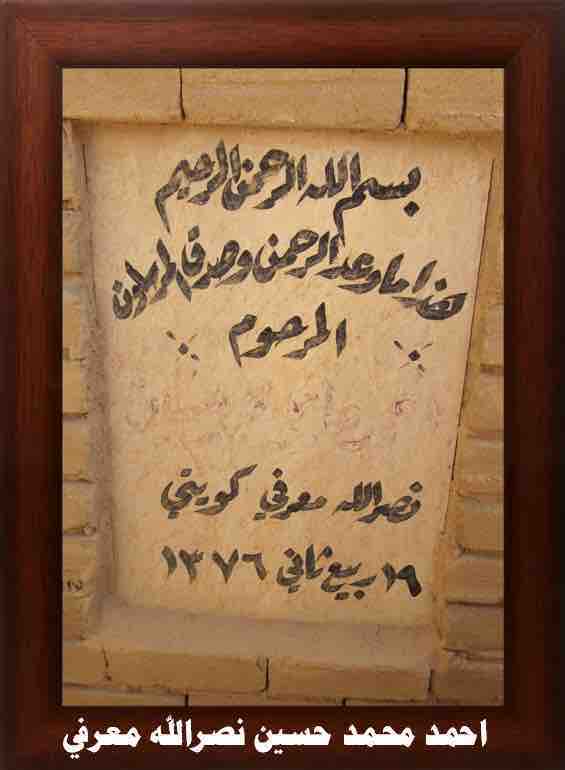 بسم الله الرحمن الرحيم
هذا ما وعد الرحمن وصدق المرسلون
المرحوم
نصرالله معرفي كويتي
١٩ ربيع ثاني ١٣٧٦
احمد محمد حسين نصرالله معرفي